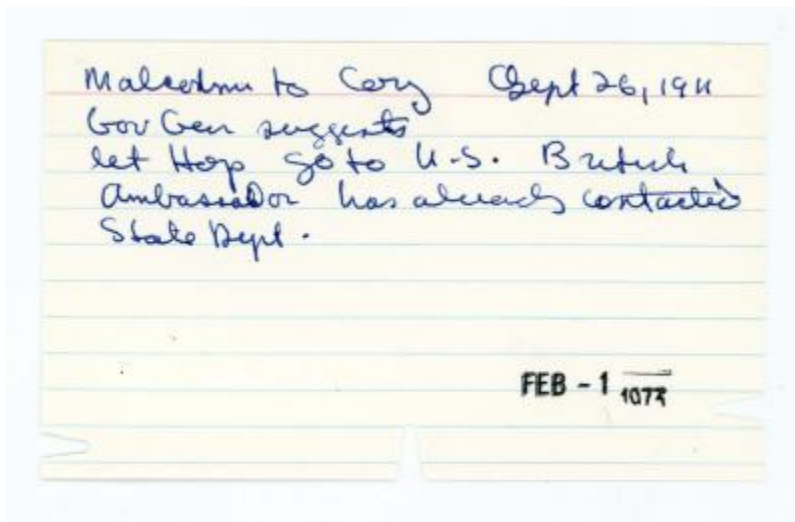 Malcolm to Cory Sept 26, 1911
Gov Gen suggests
let Hop go to U.S. British
Ambassador has already contacted
State Dept.
FEB - 1